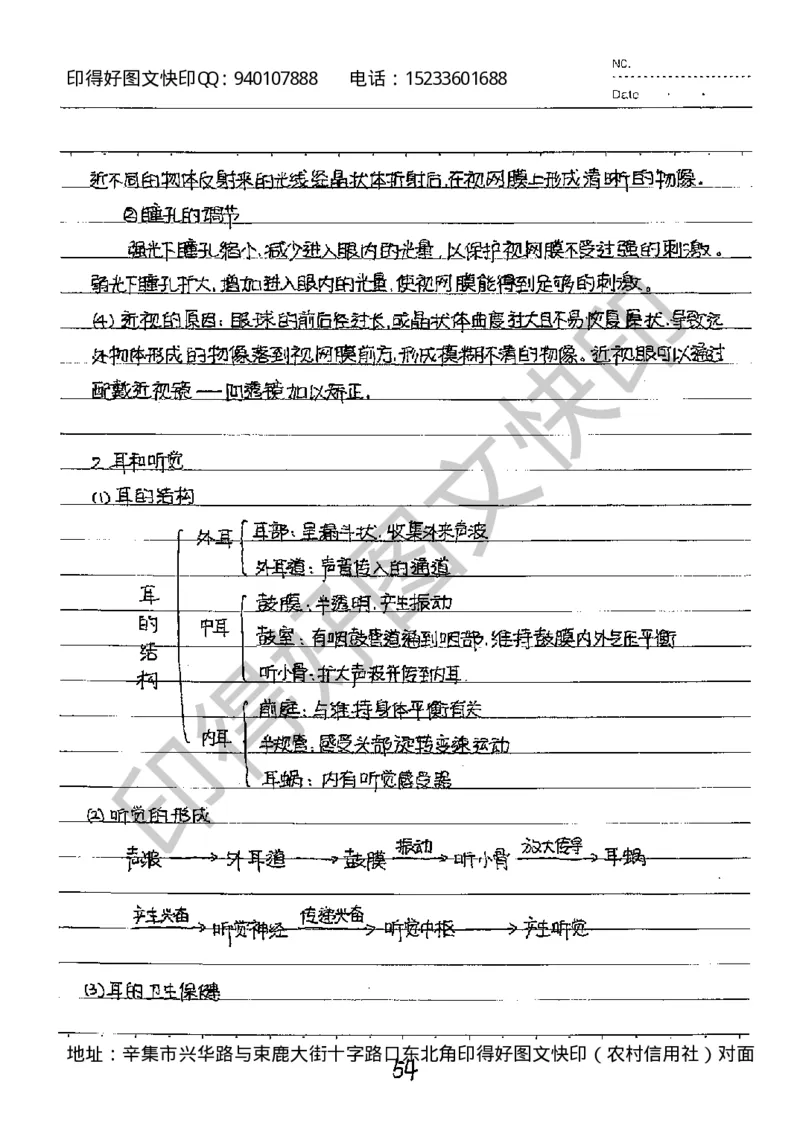 印得好图文快印QQ：940107888 电话：15233601688
NO.
Date
近不同的物体反射来的光线经晶状体折射后,在视网膜上形成清晰的物像。
②瞳孔的调节
强光下瞳孔缩小,减少进入眼内的光量,以保护视网膜不受过强的刺激。
弱光下瞳孔扩大,增加进入眼内的光量,使视网膜能得到足够的刺激。
(4)近视的原因:眼球的前后径过长,或晶状体曲度过大且不易恢复原状,导致远
处物体形成的物像落到视网膜前方,形成模糊不清的物像。近视眼可以通过
配戴近视镜——凹透镜加以矫正.
2.耳和听觉
(1)耳的结构
耳的结构
外耳
耳部:呈漏斗状,收集外来声波
外耳道:声音传入的通道
中耳
鼓膜:半透明,产生振动
鼓室:有咽鼓管道通到咽部,维持鼓膜内外气压平衡
听小骨:扩大声波并传到内耳
内耳
前庭:与维持身体平衡有关
半规管:感受头部旋转变速运动
耳蜗:内有听觉感受器
(2)听觉的形成
声波→外耳道→鼓膜 振动→听小骨 放大传导→耳蜗
产生兴奋→听觉神经 传递兴奋→听觉中枢→产生听觉
(3)耳的卫生保健
地址：辛集市兴华路与束鹿大街十字路口东北角印得好图文快印（农村信用社）对面
54
印得好图文快印